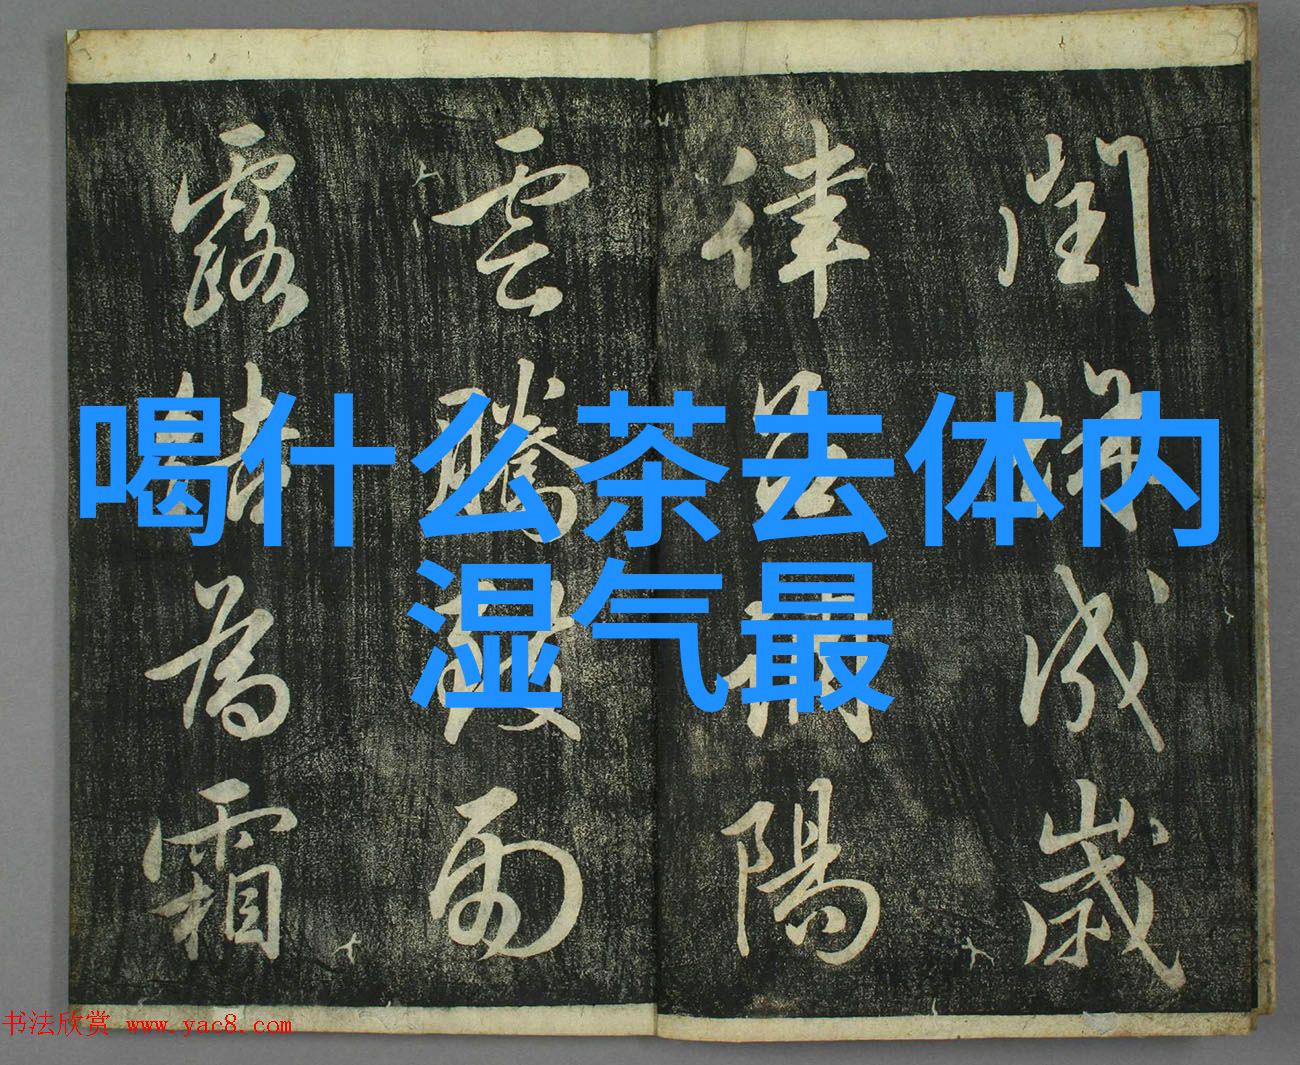 喝什么茶去体内
湿气最
閏餘成歲
律呂調陽
雲騰致雨
露結為霜
书法欣赏 www.yac8.com